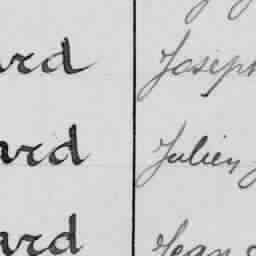 ard Joseph
ard Julien
ard Jean